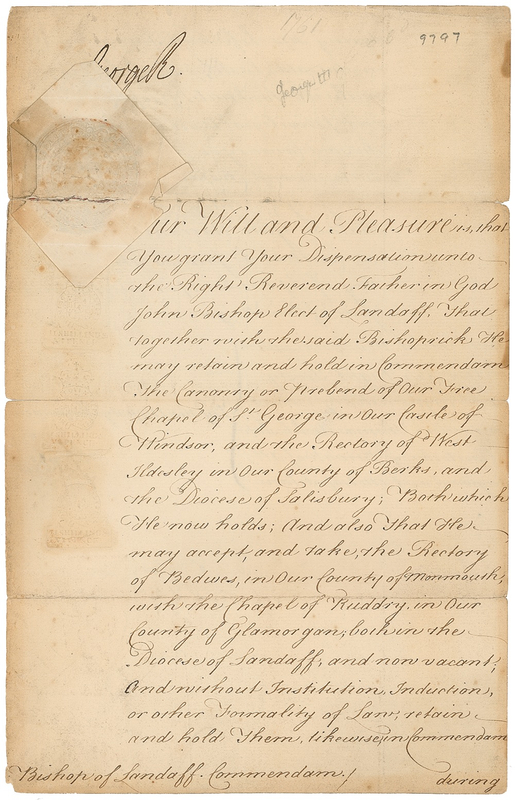 1761
9797
George R.
George III
Our Will and Pleasure is, that
You grant Your Dispensation unto
the Right Reverend Father in God
John Bishop Elect of Landaff, That
together with the said Bishoprick He
may retain and hold in Commendam
The Canonry or Prebend of Our Free
Chapel of St. George in Our Castle of
Windsor, and the Rectory of West
Ildesley in Our County of Berks, and
the Diocese of Salisbury; Both which
He now holds; And also That He
may accept, and take, the Rectory
of Bedwes, in Our County of Monmouth,
with the Chapel of Ruddry, in Our
County of Glamorgan, both in the
Diocese of Landaff, and now vacant,
And without Institution, Induction,
or other Formality of Law, retain
and hold Them, likewise, in Commendam
Bishop of Landaff. Commendam./
during